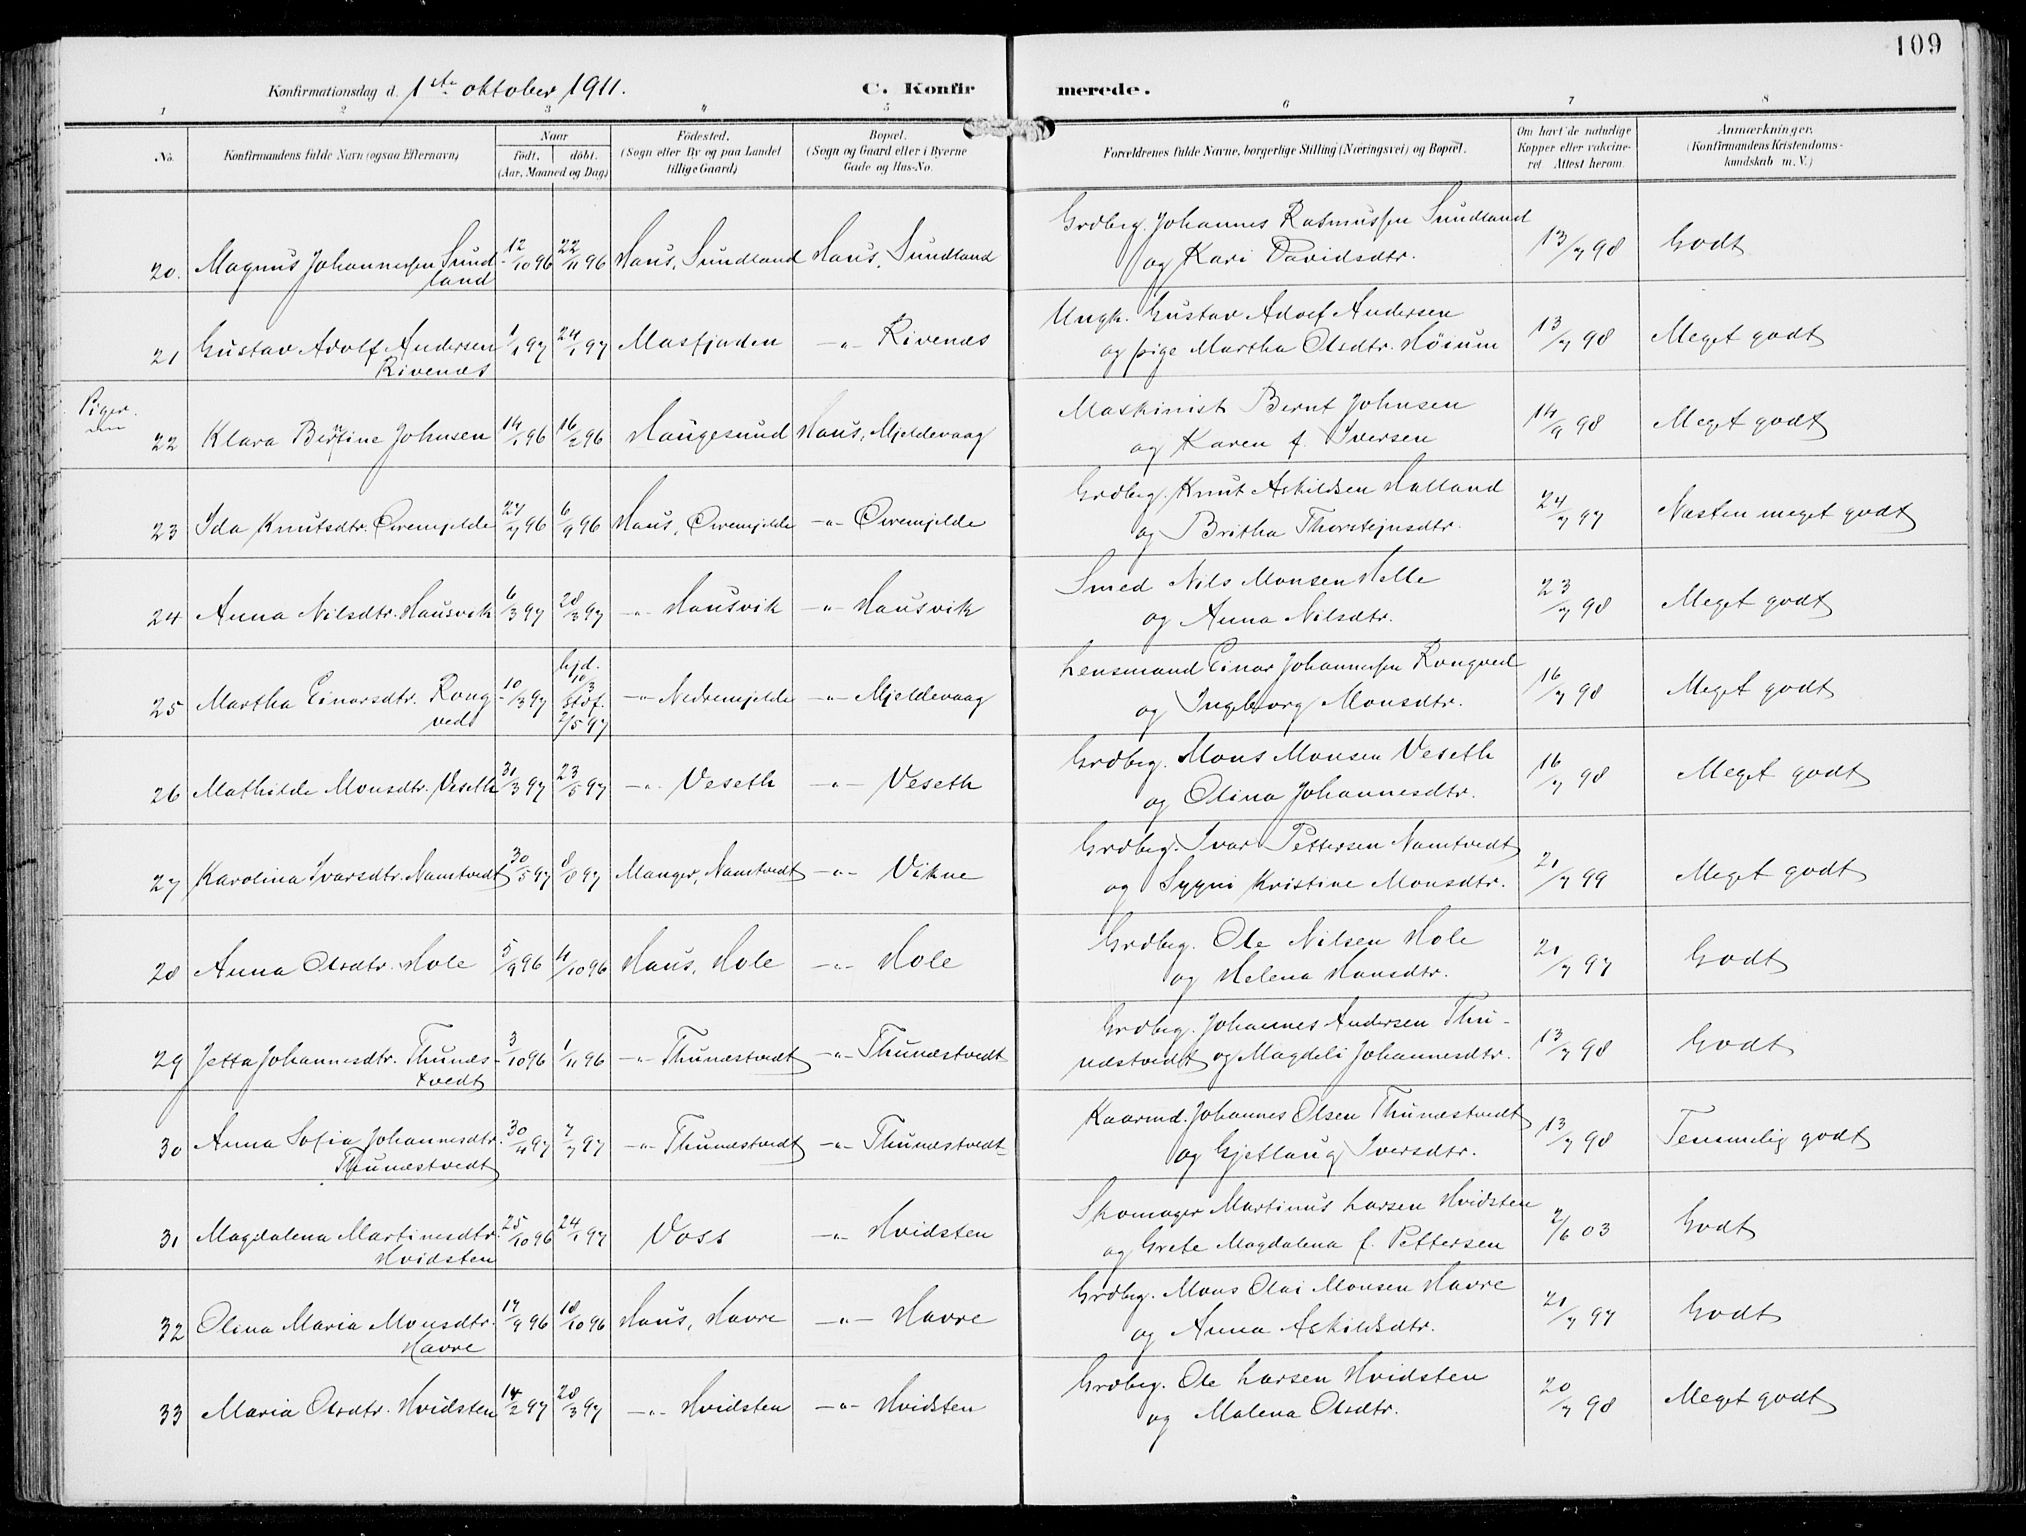 109
Konfirmationsdag d. 1ste oktober 1911.
C. Konfirmerede.
1 2 3 4 5 6 7 8
No.
Konfirmandens fulde Navn (ogsaa Efternavn)
Naar
födt, döbt.
(Aar, Maaned og Dag)
Födested.
(Sogn eller By og paa Landet
tillige Gaard)
Bopæl.
(Sogn og Gaard eller i Byerne
Gade og Hus-No.
Forældrenes fulde Navne, borgerlige Stilling (Næringsvei) og Bopæl.
Om havt de naturlige
Kopper eller vakcine-
ret Attest herom.
Anmærkninger.
(Konfirmandens Kristendoms-
kundskab m. V.)
20. Magnus Johannessen Sund
land
12/10 96 22/11 96 Haus, Sundland Haus, Sundland
Grdbrg. Johannes Rasmussen Sundland
og Kari Davidsdtr.
13/7 98 Godt
21 Gustav Adolf Andersen
Rivenæs
1/1 97 24/1 97 Masfjorden -"- Rivenæs
Ungk. Gustav Adolf Andersen
og pige Martha Olsdtr. Höium
13/7 98 Meget godt
Piger
22 Klara Berntine Johnsen 14/1 96 16/2 96 Haugesund Haus, Mjeldevaag
Maskinist Bernt Johnsen
og Karen f. Iversen
14/9 98 Meget godt
23 Ida Knutsdtr. Övremjelde 27/7 96 6/9 96 Haus, Övremjelde -"- Övremjelde
Grdbrg. Knut Askildsen Hatland
og Britha Thorstejnsdtr.
24/7 97 Næsten meget godt
24 Anna Nilsdtr. Hausvik 6/3 97 28/3 97 -"- Hausvik -"- Hausvik
Smed Nils Monsen Helle
og Anna Nilsdtr.
23/7 98 Meget godt
25 Martha Einarsdtr. Rong
ved
10/3 97 hjd.
10/3
stdf.
2/5 97
-"- Nedremjelde -"- Mjeldevaag
Lensmand Einar Johannessen Rongved
og Ingeborg Monsdtr.
16/7 98 Meget godt
26 Mathilde Monsdtr. Veseth 31/3 97 23/5 97 -"- Veseth -"- Veseth
Grdbrg. Mons Monsen Veseth
og Olina Johannesdtr.
16/7 98 Meget godt
27 Karolina Ivarsdtr. Namtvedt 30/5 97 8/8 97 Manger, Namtvedt -"- Vikne
Grdbrg. Ivar Pettersen Namtvedt
og Sygni Kristine Monsdtr.
21/7 99 Meget godt
28 Anna Olsdtr. Hole 5/9 96 4/10 96 Haus, Hole -"- Hole
Grdbrg. Ole Nilsen Hole
og Helena Hansdtr.
21/7 97 Godt
29 Jetta Johannesdtr. Thunæs-
tvedt
3/10 96 1/11 96 -"- Thunæstvedt -"- Thunæstvedt
Grdbrg. Johannes Andersen Thu-
næstvedt og Magdeli Johannesdtr.
13/7 98 Godt
30 Anna Sofia Johannesdtr.
Thunæstvedt
30/4 97 7/7 97 -"- Thunæstvedt -"- Thunæstvedt
Kaarmd. Johannes Olsen Thunæstvedt
og Gjetlaug Iversdtr.
13/7 98 Temmelig godt
31 Magdalena Martinusdtr.
Hvidsten
25/10 96 24/1 97 Voss -"- Hvidsten
Skomager Martinus Larsen Hvidsten
og Grete Magdalena f. Pettersen
2/6 03 Godt
32 Olina Maria Monsdtr.
Havre
17/9 96 18/10 96 Haus, Havre -"- Havre
Grdbrg. Mons Olai Monsen Havre
og Anna Askildsdtr.
21/7 97 Godt
33 Maria Olsdtr. Hvidsten 14/2 97 28/3 97 -"- Hvidsten -"- Hvidsten
Grdbrg. Ole Larsen Hvidsten
og Malena Olsdtr.
20/7 98 Meget godt